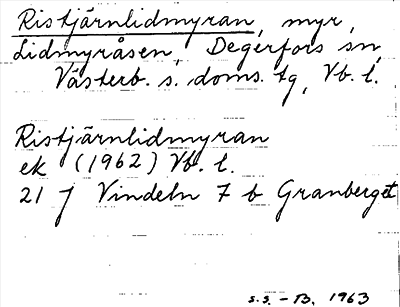 Ristjärnlidmyran, myr,
Lidmyråsen, Degerfors sn,
Västerb. s. doms. tg, Vb. l.
Ristjärnlidmyran
ek (1962) Vb. l.
21 J Vindeln 7 b Granberget
s.s. - B. 1963